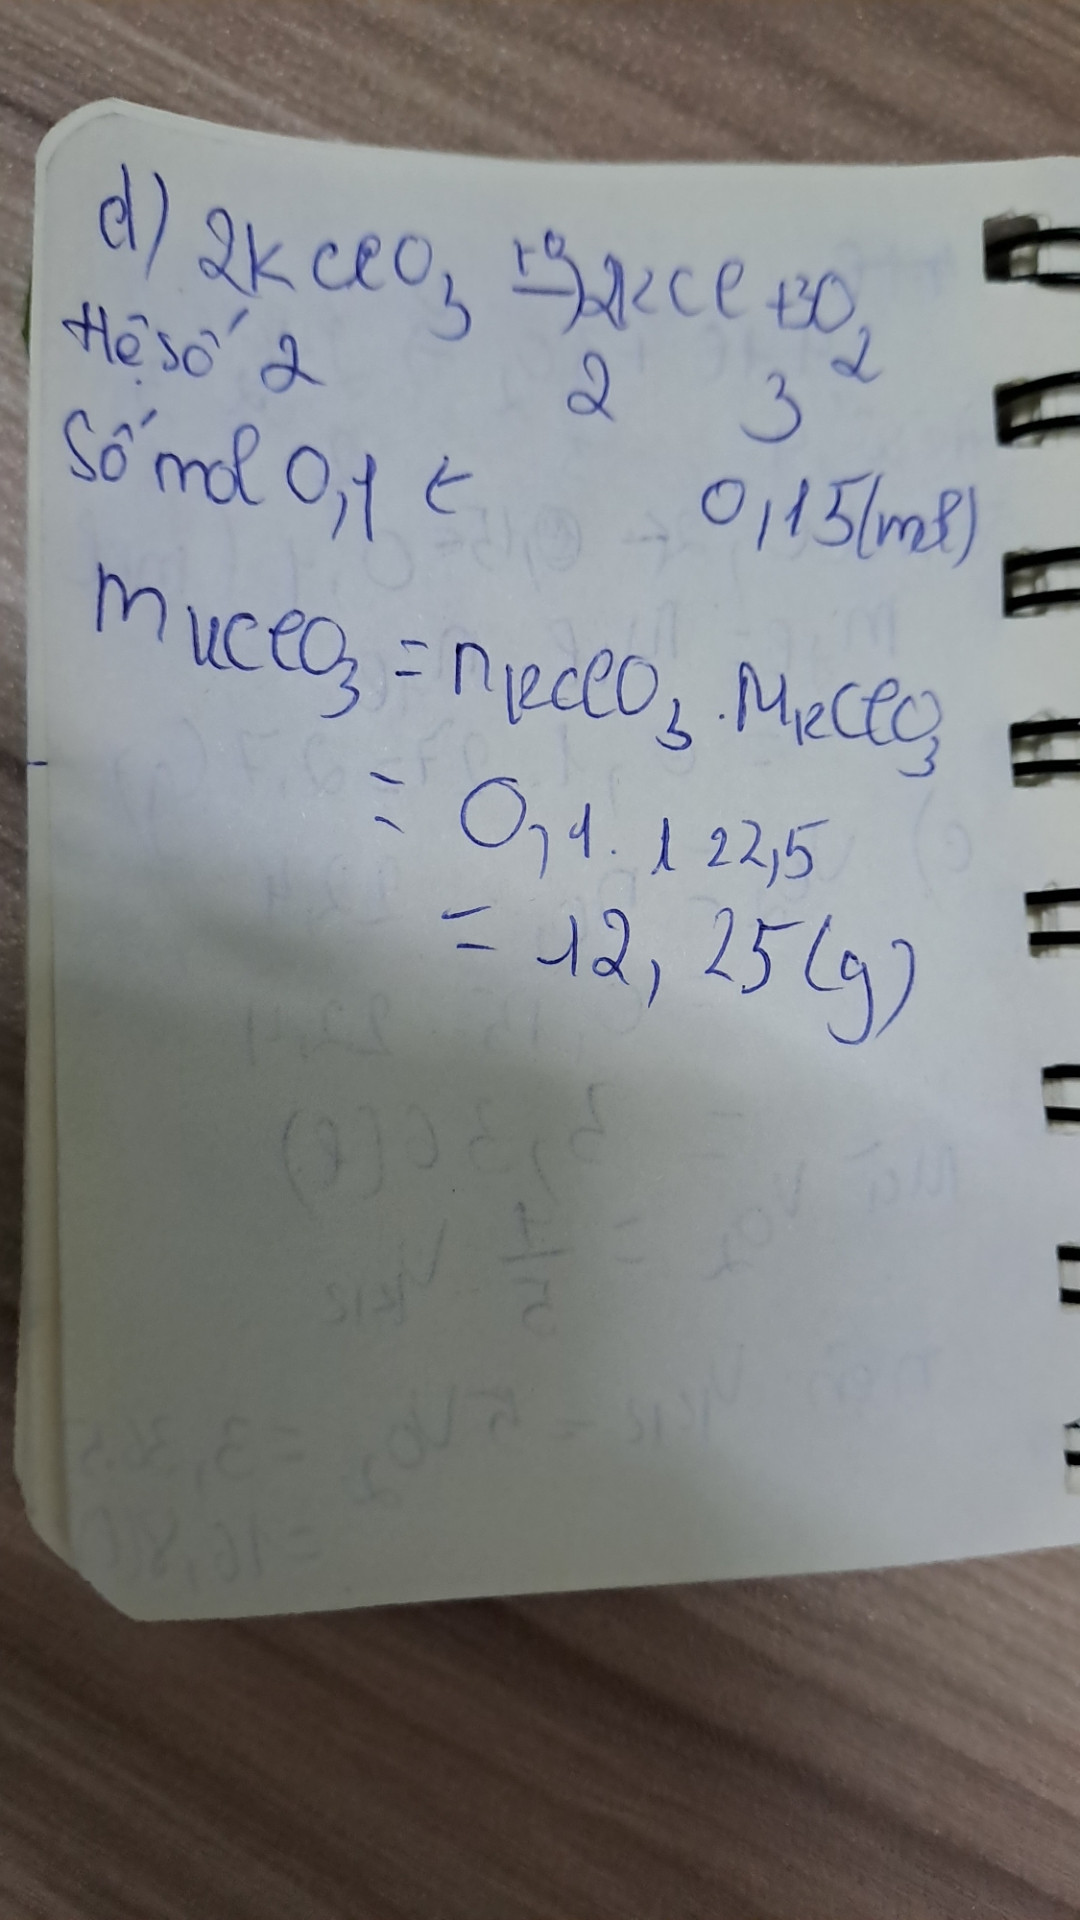 d) 2KClO3 t° → 2KCl + 3O2
Hệ số 2 2 3
Số mol 0,1 ← 0,15(mol)
mKClO3 = nKClO3 . MKClO3
= 0,1 . 122,5
= 12,25(g)